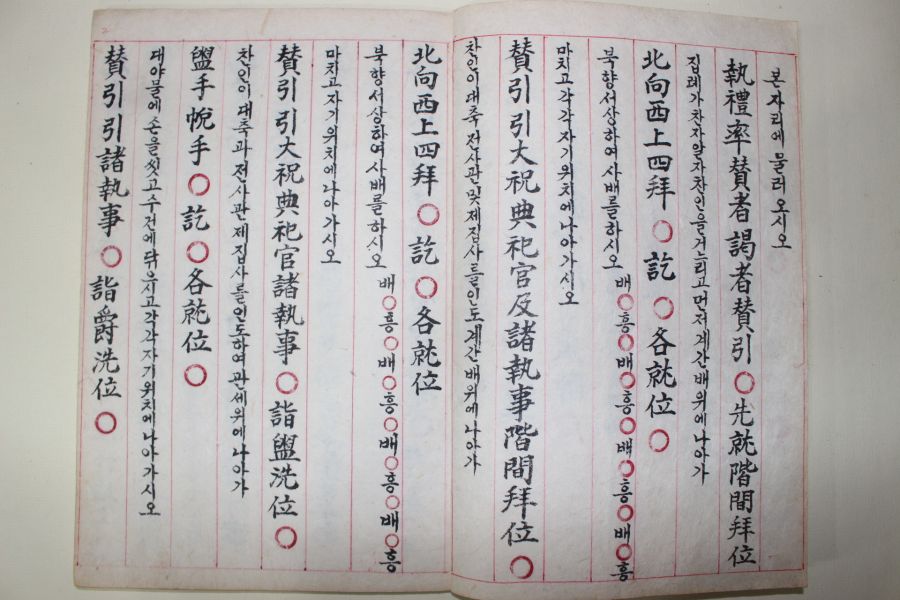 본자리에 물러오시오
執禮率賛者謁者賛引○先就階間拜位
집례가 찬자알자찬인을 거느리고 먼저 계간배위에 나아가
北向西上四拜○訖○各就位○
북향서상하여 사배를 하시오 배○흥○배○흥○배○흥○배○흥
마치고 각각 자기위치에 나아가시오
賛引引大祝典祀官及諸執事階間拜位○
찬인이 대축 전사관 및 제집사를 인도 계간배위에 나아가
北向西上四拜○訖○各就位
북향서상하여 사배를 하시오 배○흥○배○흥○배○흥○배○흥
마치고 자기위치에 나아가시오
賛引引大祝典祀官諸執事○詣盥洗位○
찬인이 대축과 전사관 제집사를 인도하여 관세위에 나아가
盥手帨手○訖○各就位○
대야물에 손을 씻고 수건에 닦으시고 각각 자기위치에 나아가시오
賛引引諸執事○詣爵洗位○